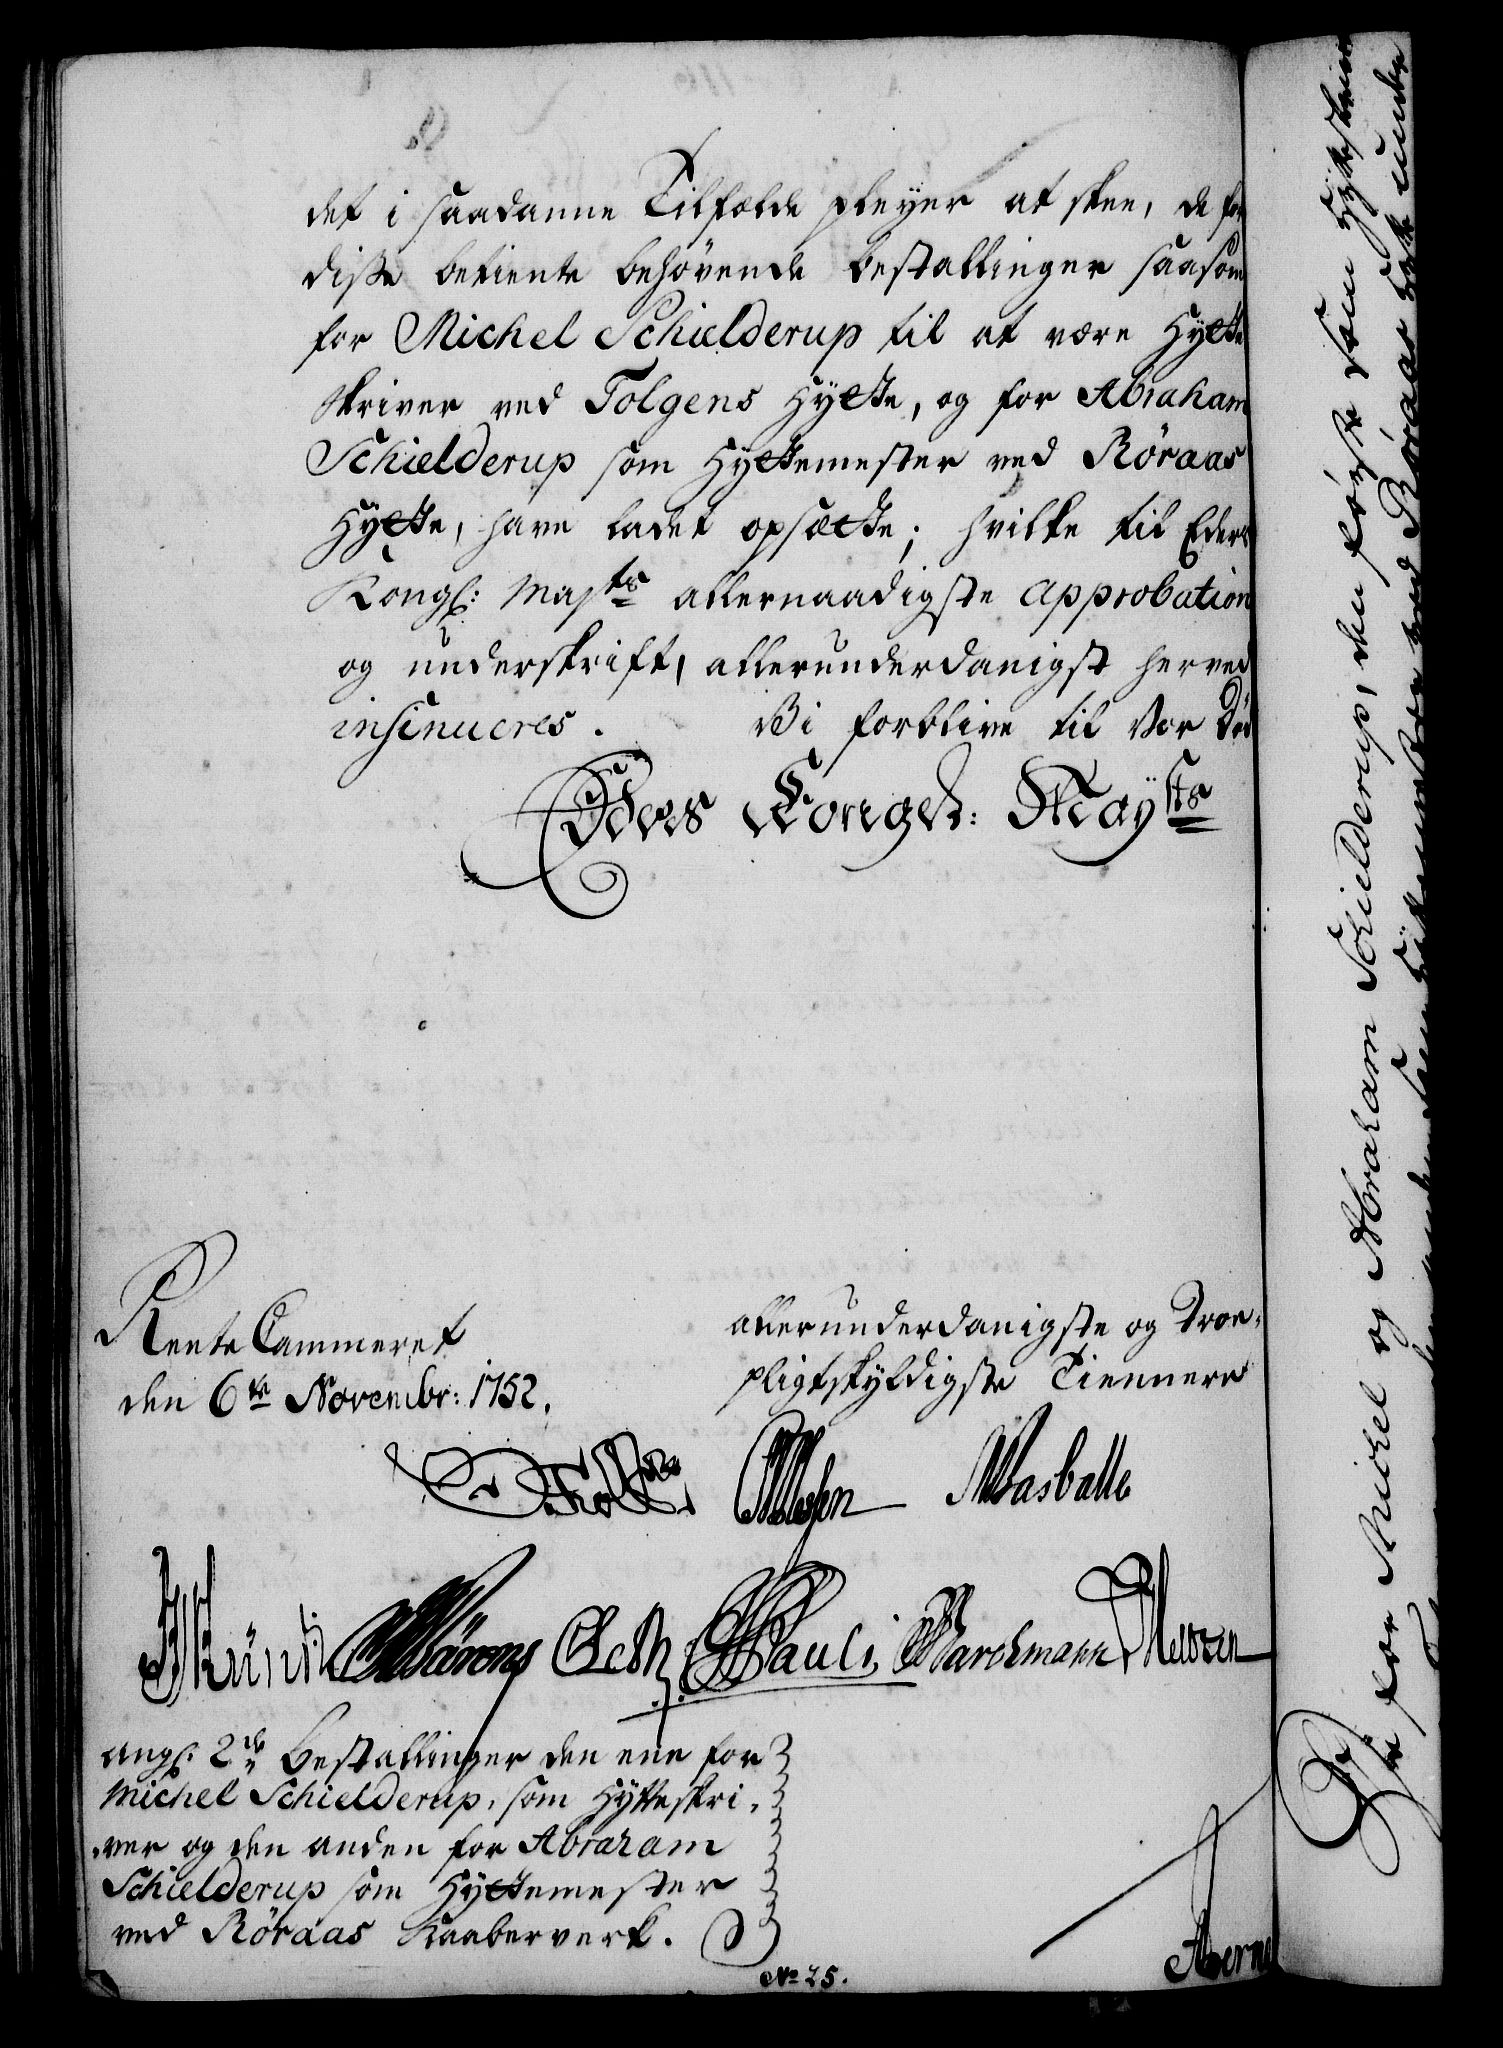 det i saadanne Tilfælde pleyer at skee, de for
disse betiente behøvende bestallinger saasom
for Michel Schielderup til at være Hytte
skriver ved Tolgens Hytte, og for Abraham
Schielderup som Hyttemester ved Röraas
Hytte, have ladet opsætte; hvilke til Eders
Kongl: Maj.ts allernaadigste Approbation
og underskrift, allerunderdanigst herved
insinueres. Vi forblive til Vor Död
Eders Kongel: May.sts
Rente Cammeret
den 6te Novembr: 1752.
allerunderdanigste og Troe-
pligtskyldigste Tiennere
Holst
Wasballe
Pauli Marckmann
ang: 2de Bestallinger den ene for
Michel Schielderup, som Hytteskri-
ver og den anden for Abraham
Schielderup som Hyttemester
ved Röraas Kaaberverk.
No 25.
for Michel og Abraham Schielderup, den første som Hytteskriver
ved Röraas under